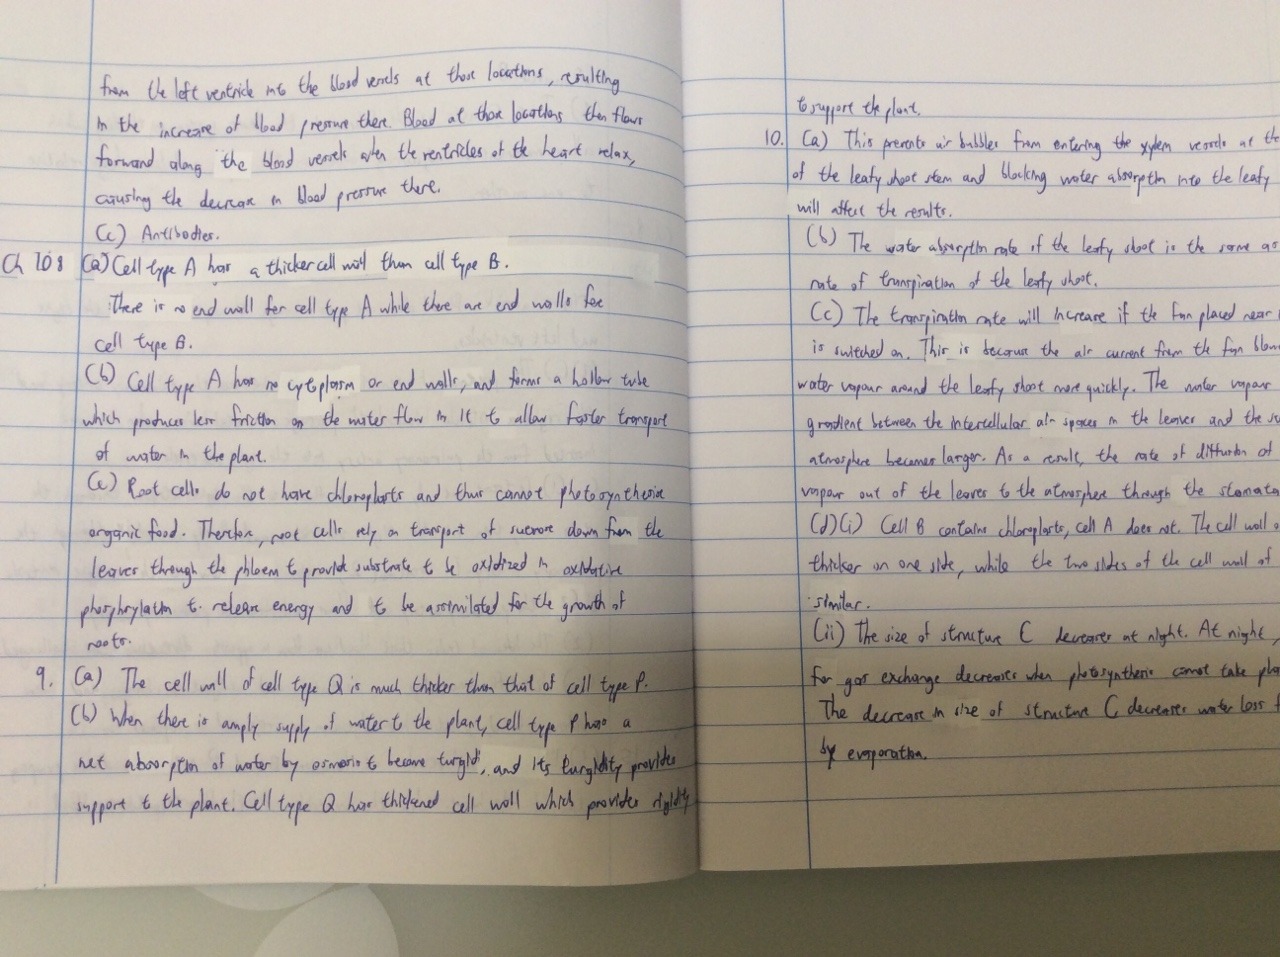 from the left ventricle into the blood vessels at those locations, resulting
in the increase of blood pressure there. Blood at those locations then flows
forward along the blood vessels when the ventricles of the heart relax,
causing the decrease in blood pressure there.
(c) Antibodies.
Ch 10 8 (a) Cell type A has a thicker cell wall than cell type B.
There is no end wall for cell type A while there are end walls for
cell type B.
(b) Cell type A has no cytoplasm or end walls, and forms a hollow tube
which produces less friction on the water flow in it to allow faster transport
of water in the plant.
(c) Root cells do not have chloroplasts and thus cannot photosynthesise
organic food. Therefore, root cells rely on transport of sucrose down from the
leaves through the phloem to provide substrate to be oxidized in oxidative
phosphorylation to release energy and to be assimilated for the growth of
roots.
9. (a) The cell wall of cell type Q is much thicker than that of cell type P.
(b) When there is amply supply of water to the plant, cell type P has a
net absorption of water by osmosis to become turgid, and its turgidity provides
support to the plant. Cell type Q has thickened cell wall which provides rigidity
to support the plant.
10. (a) This prevents air bubbles from entering the xylem vessels at the
of the leafy shoot stem and blocking water absorption into the leafy
will affect the results.
(b) The water absorption rate of the leafy shoot is the same as
rate of transpiration of the leafy shoot.
(c) The transpiration rate will increase if the fan placed near
is switched on. This is because the air current from the fan blows
water vapour around the leafy shoot more quickly. The water vapour
gradient between the intercellular air spaces in the leaves and the
atmosphere becomes larger. As a result, the rate of diffusion of
vapour out of the leaves to the atmosphere through the stomata
(d)(i) Cell B contains chloroplasts, cell A does not. The cell wall
thicker on one side, while the two sides of the cell wall of
similar.
(ii) The size of structure C decreases at night. At night,
for gas exchange decreases when photosynthesis cannot take
The decrease in size of structure C decreases water loss
by evaporation.